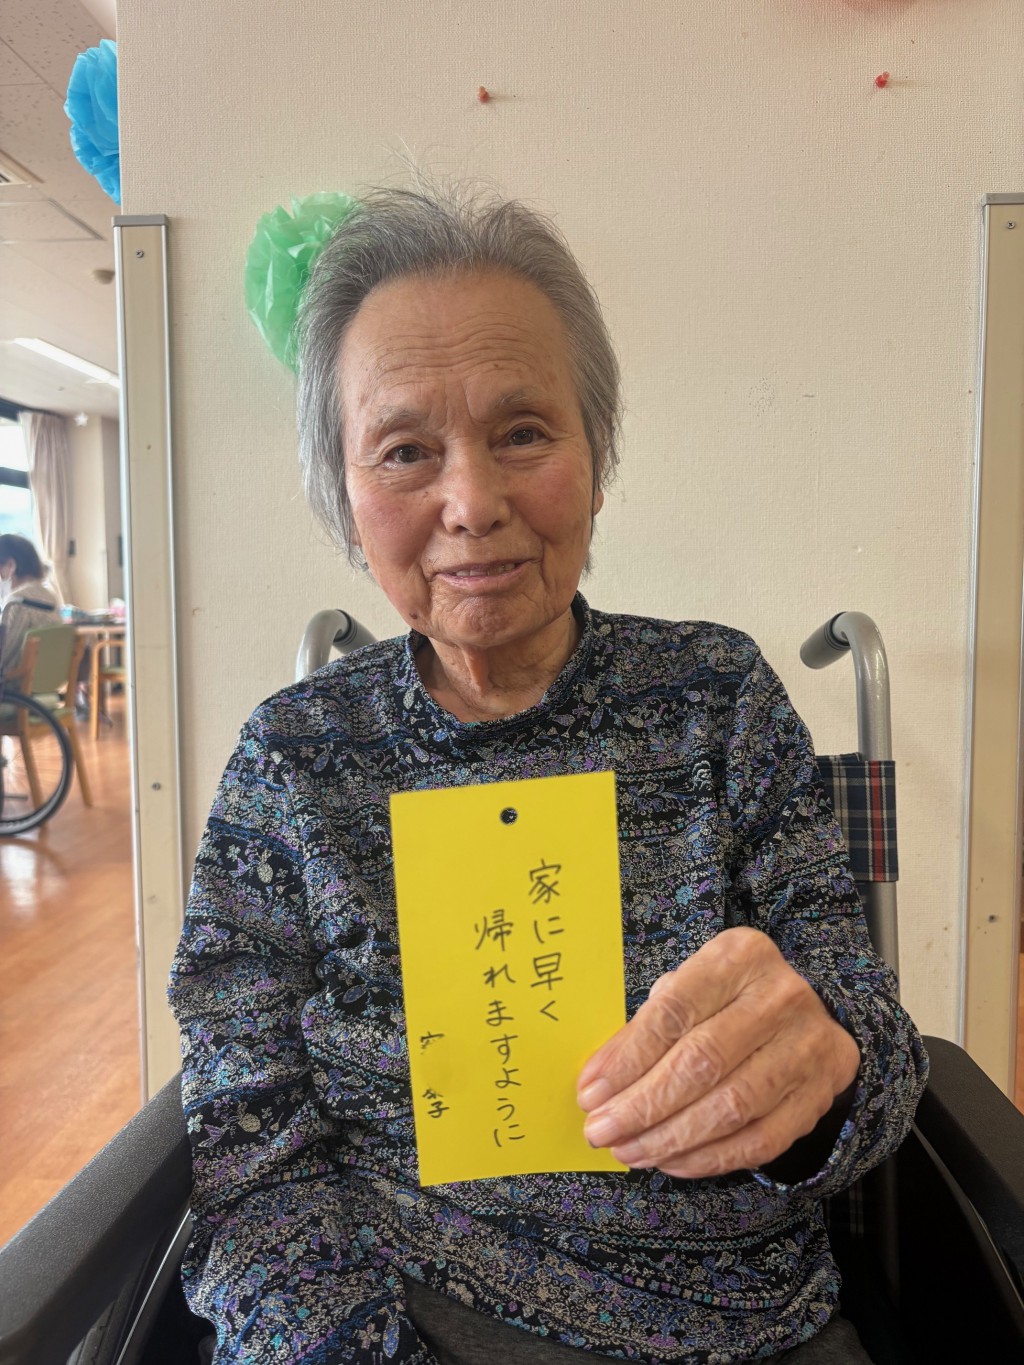 家に早く
帰れますように